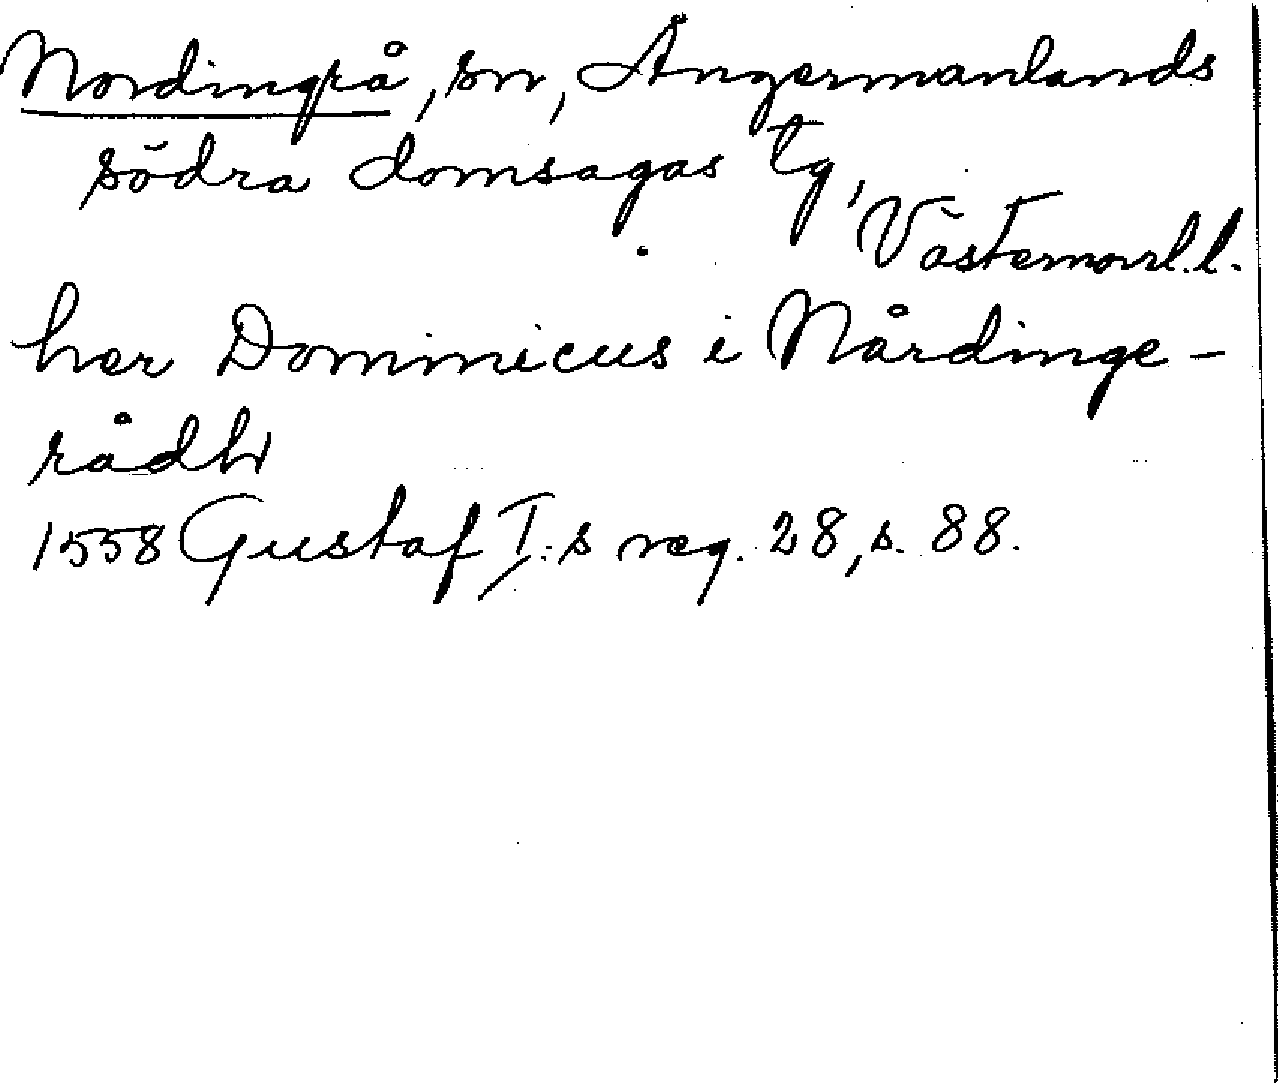 Nordingrå, sn, Ångermanlands
södra domsagas tg,
Västernorrl.l.
her Dominicus i Nårdinge-
rådh
1558 Gustaf I:s reg. 28, s. 88.